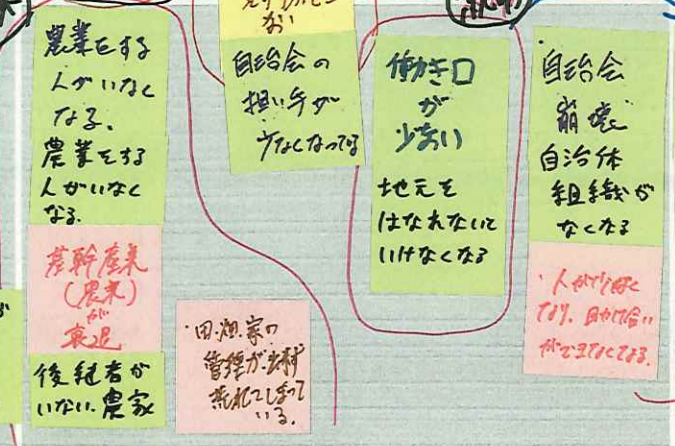 農業をする
人がいなく
なる。
農業をする
人がいなく
なる。
基幹産業
(農業)
が
衰退
後継者が
いない農家
ない
自治会の
担い手が
少なくなってる
・田・畑・家の
管理が出来ず
荒れてしまって
いる。
働き口
が
少ない
地元を
はなれないと
いけなくなる
・自治会
崩壊
自治体
組織が
なくなる
・人がいなく
なり、助け合い
ができなくなる。